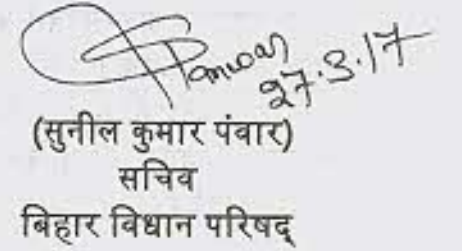 Panwar
27.3.17
(सुनील कुमार पंवार)
सचिव
बिहार विधान परिषद्